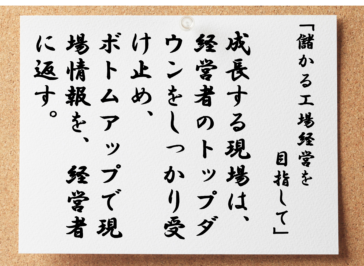 「儲かる工場経営を
目指して」
成長する現場は、
経営者のトップダ
ウンをしっかり受
け止め、
ボトムアップで現
場情報を、経営者
に返す。